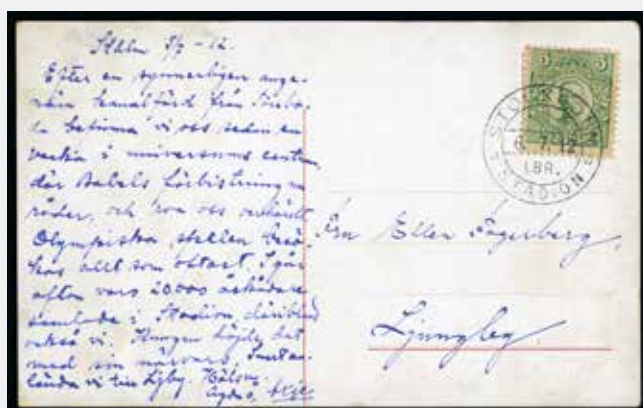 Sthlm 7/7 - 12.
Efter en synnerligen ange-
näm kanalfärd från Törebo-
da befinna vi oss sedan en
vecka i universums centrum,
där Babels förbistring
råder, och
Olympiska ställen besö-
kas allt som oftast. I går
afton voro 20000 åskådare
samlade i Stadion, däribland
också vi. Konungen höjde det
med sin närvaro.
vi Ljby. Hälsn.
5
STOCKHOLM
6. 7. 12
LBR.
STADION
Fru Ellen Fagerberg,
Ljungby.